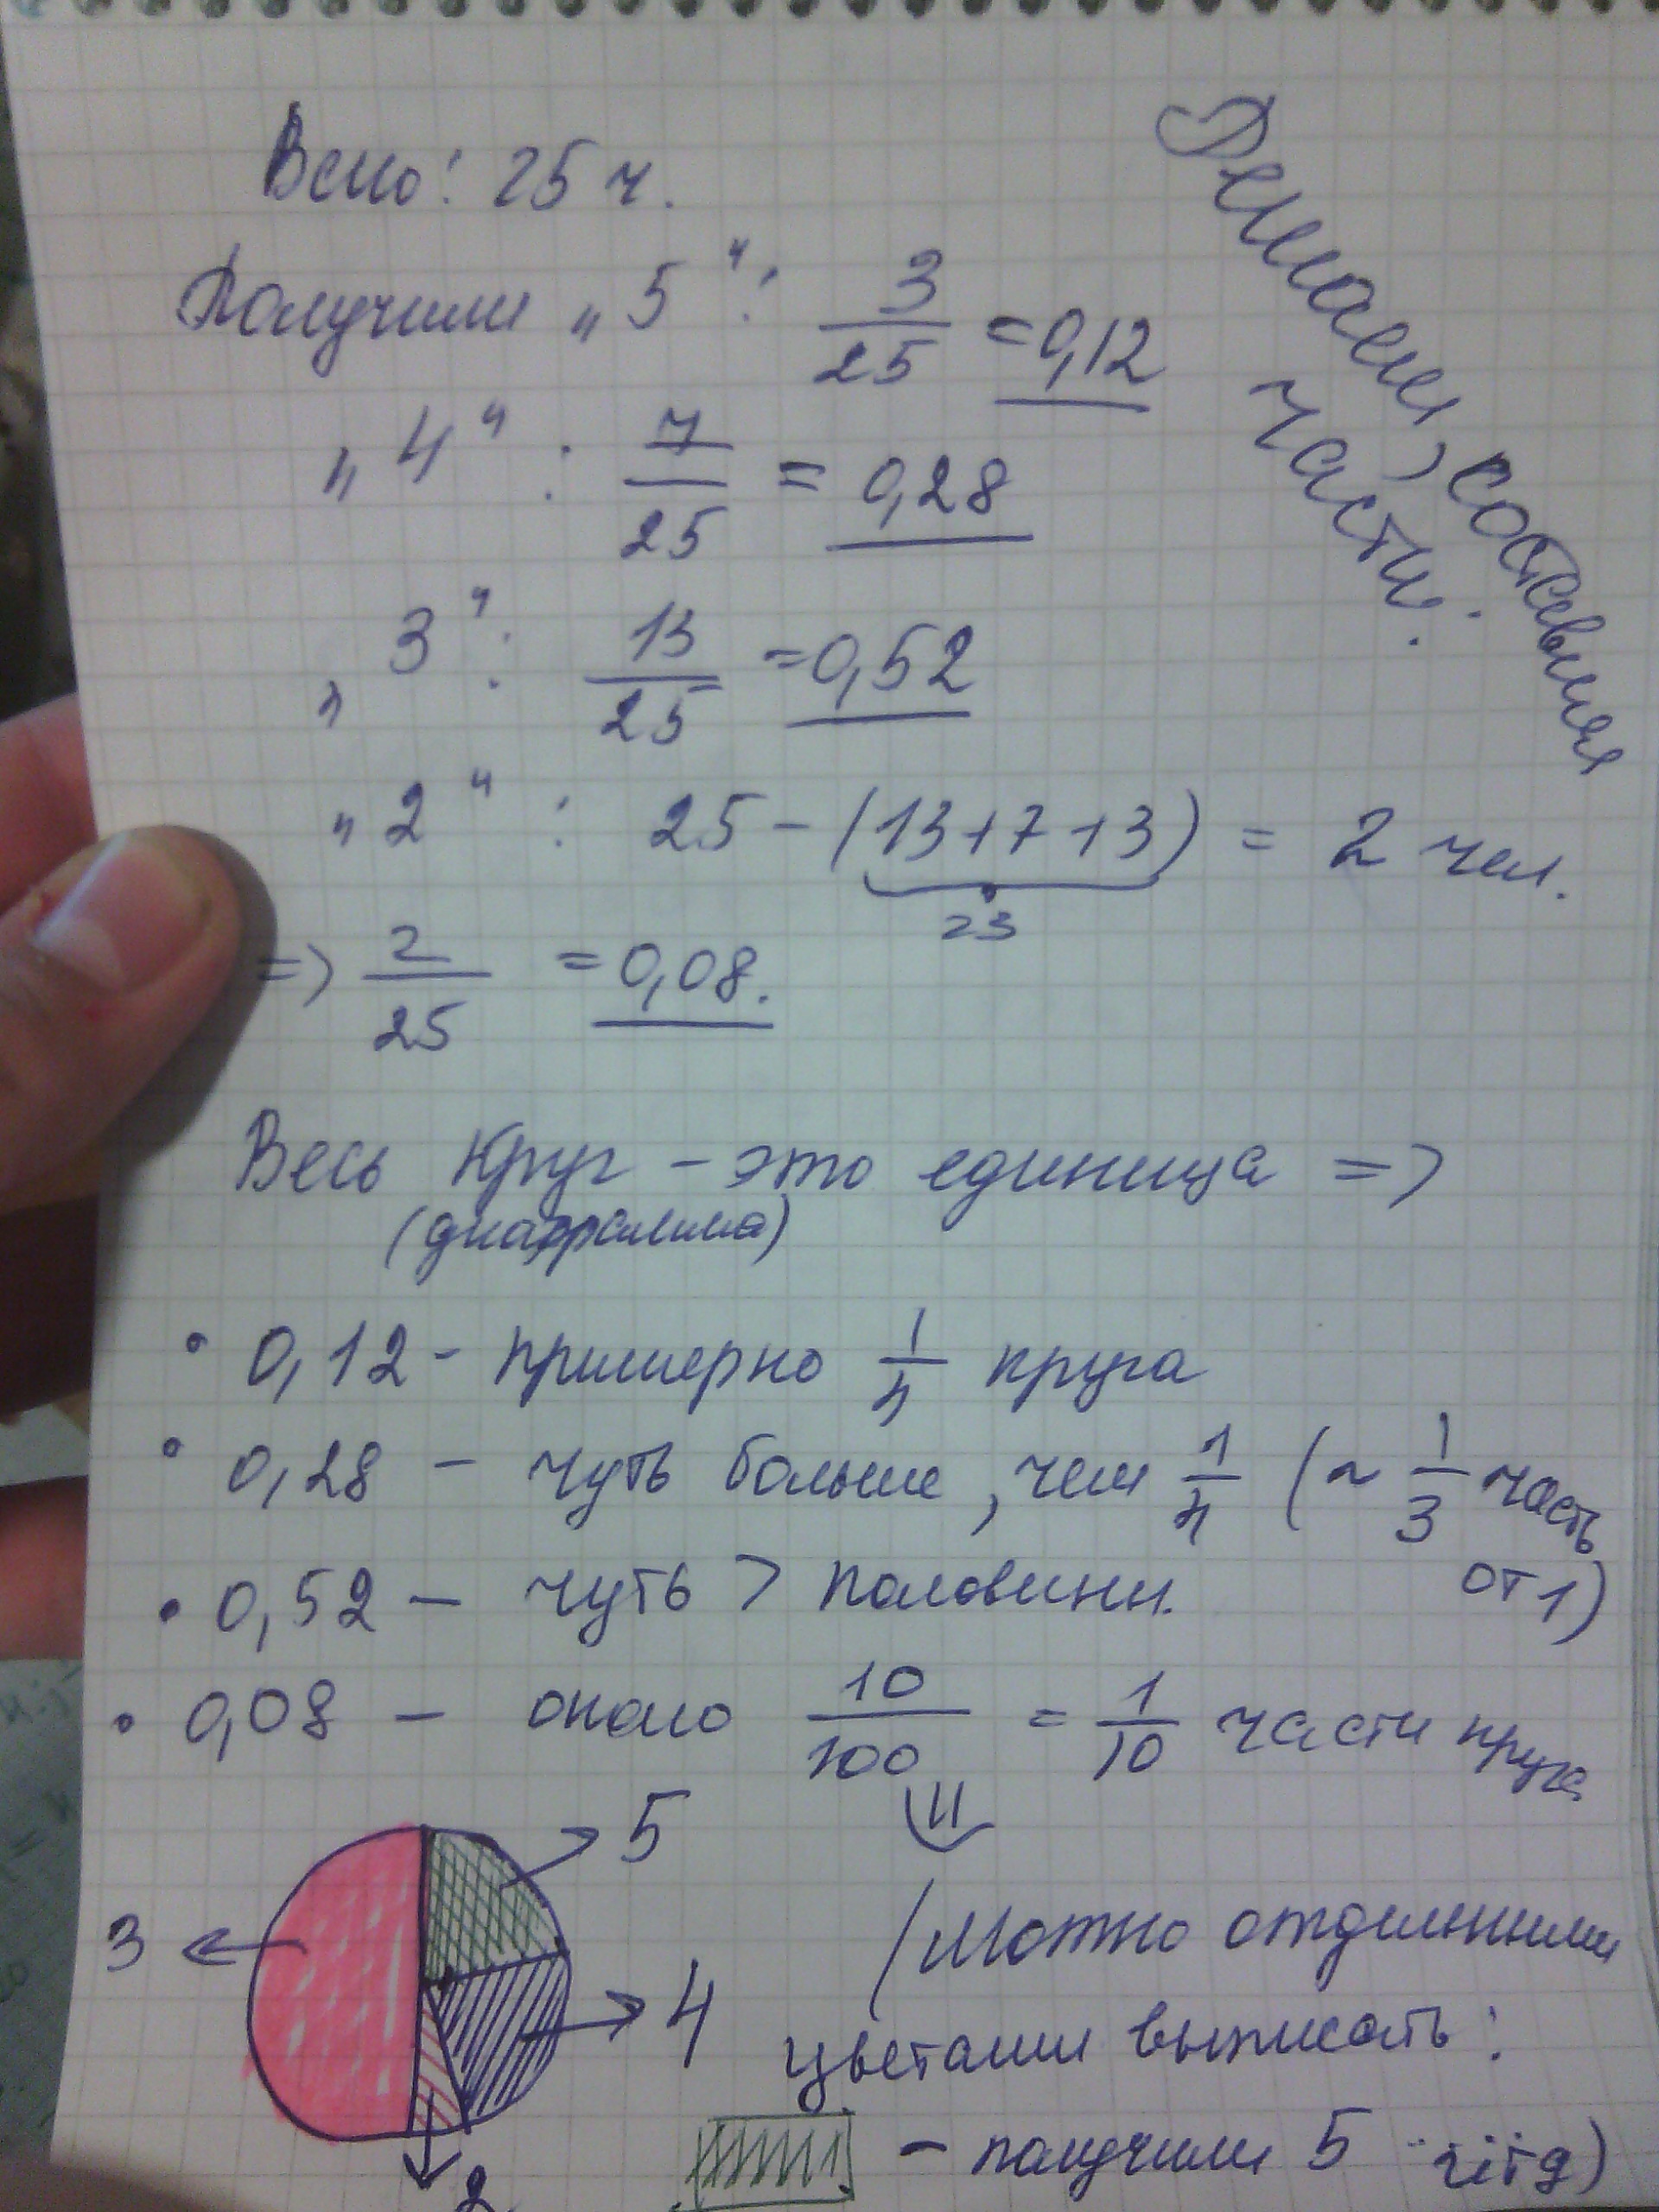 Всего: 25 ч.
Получили „5“: 3/25 = 0,12
„4“: 7/25 = 0,28
„3“: 13/25 = 0,52
„2“: 25 - (13+7+3) = 2 чел.
23
=> 2/25 = 0,08.
Делим, составляя
части:
Весь круг - это единица =>
(диаграмма)
• 0,12 - примерно 1/4 круга
• 0,28 - чуть больше, чем 1/4 (~ 1/3 часть
от 1)
• 0,52 - чуть > половины.
• 0,08 - около 10/100 = 1/10 части круга
5
3
4
2
(Можно отдельными
цветами выписать:
- получили 5 и т д)